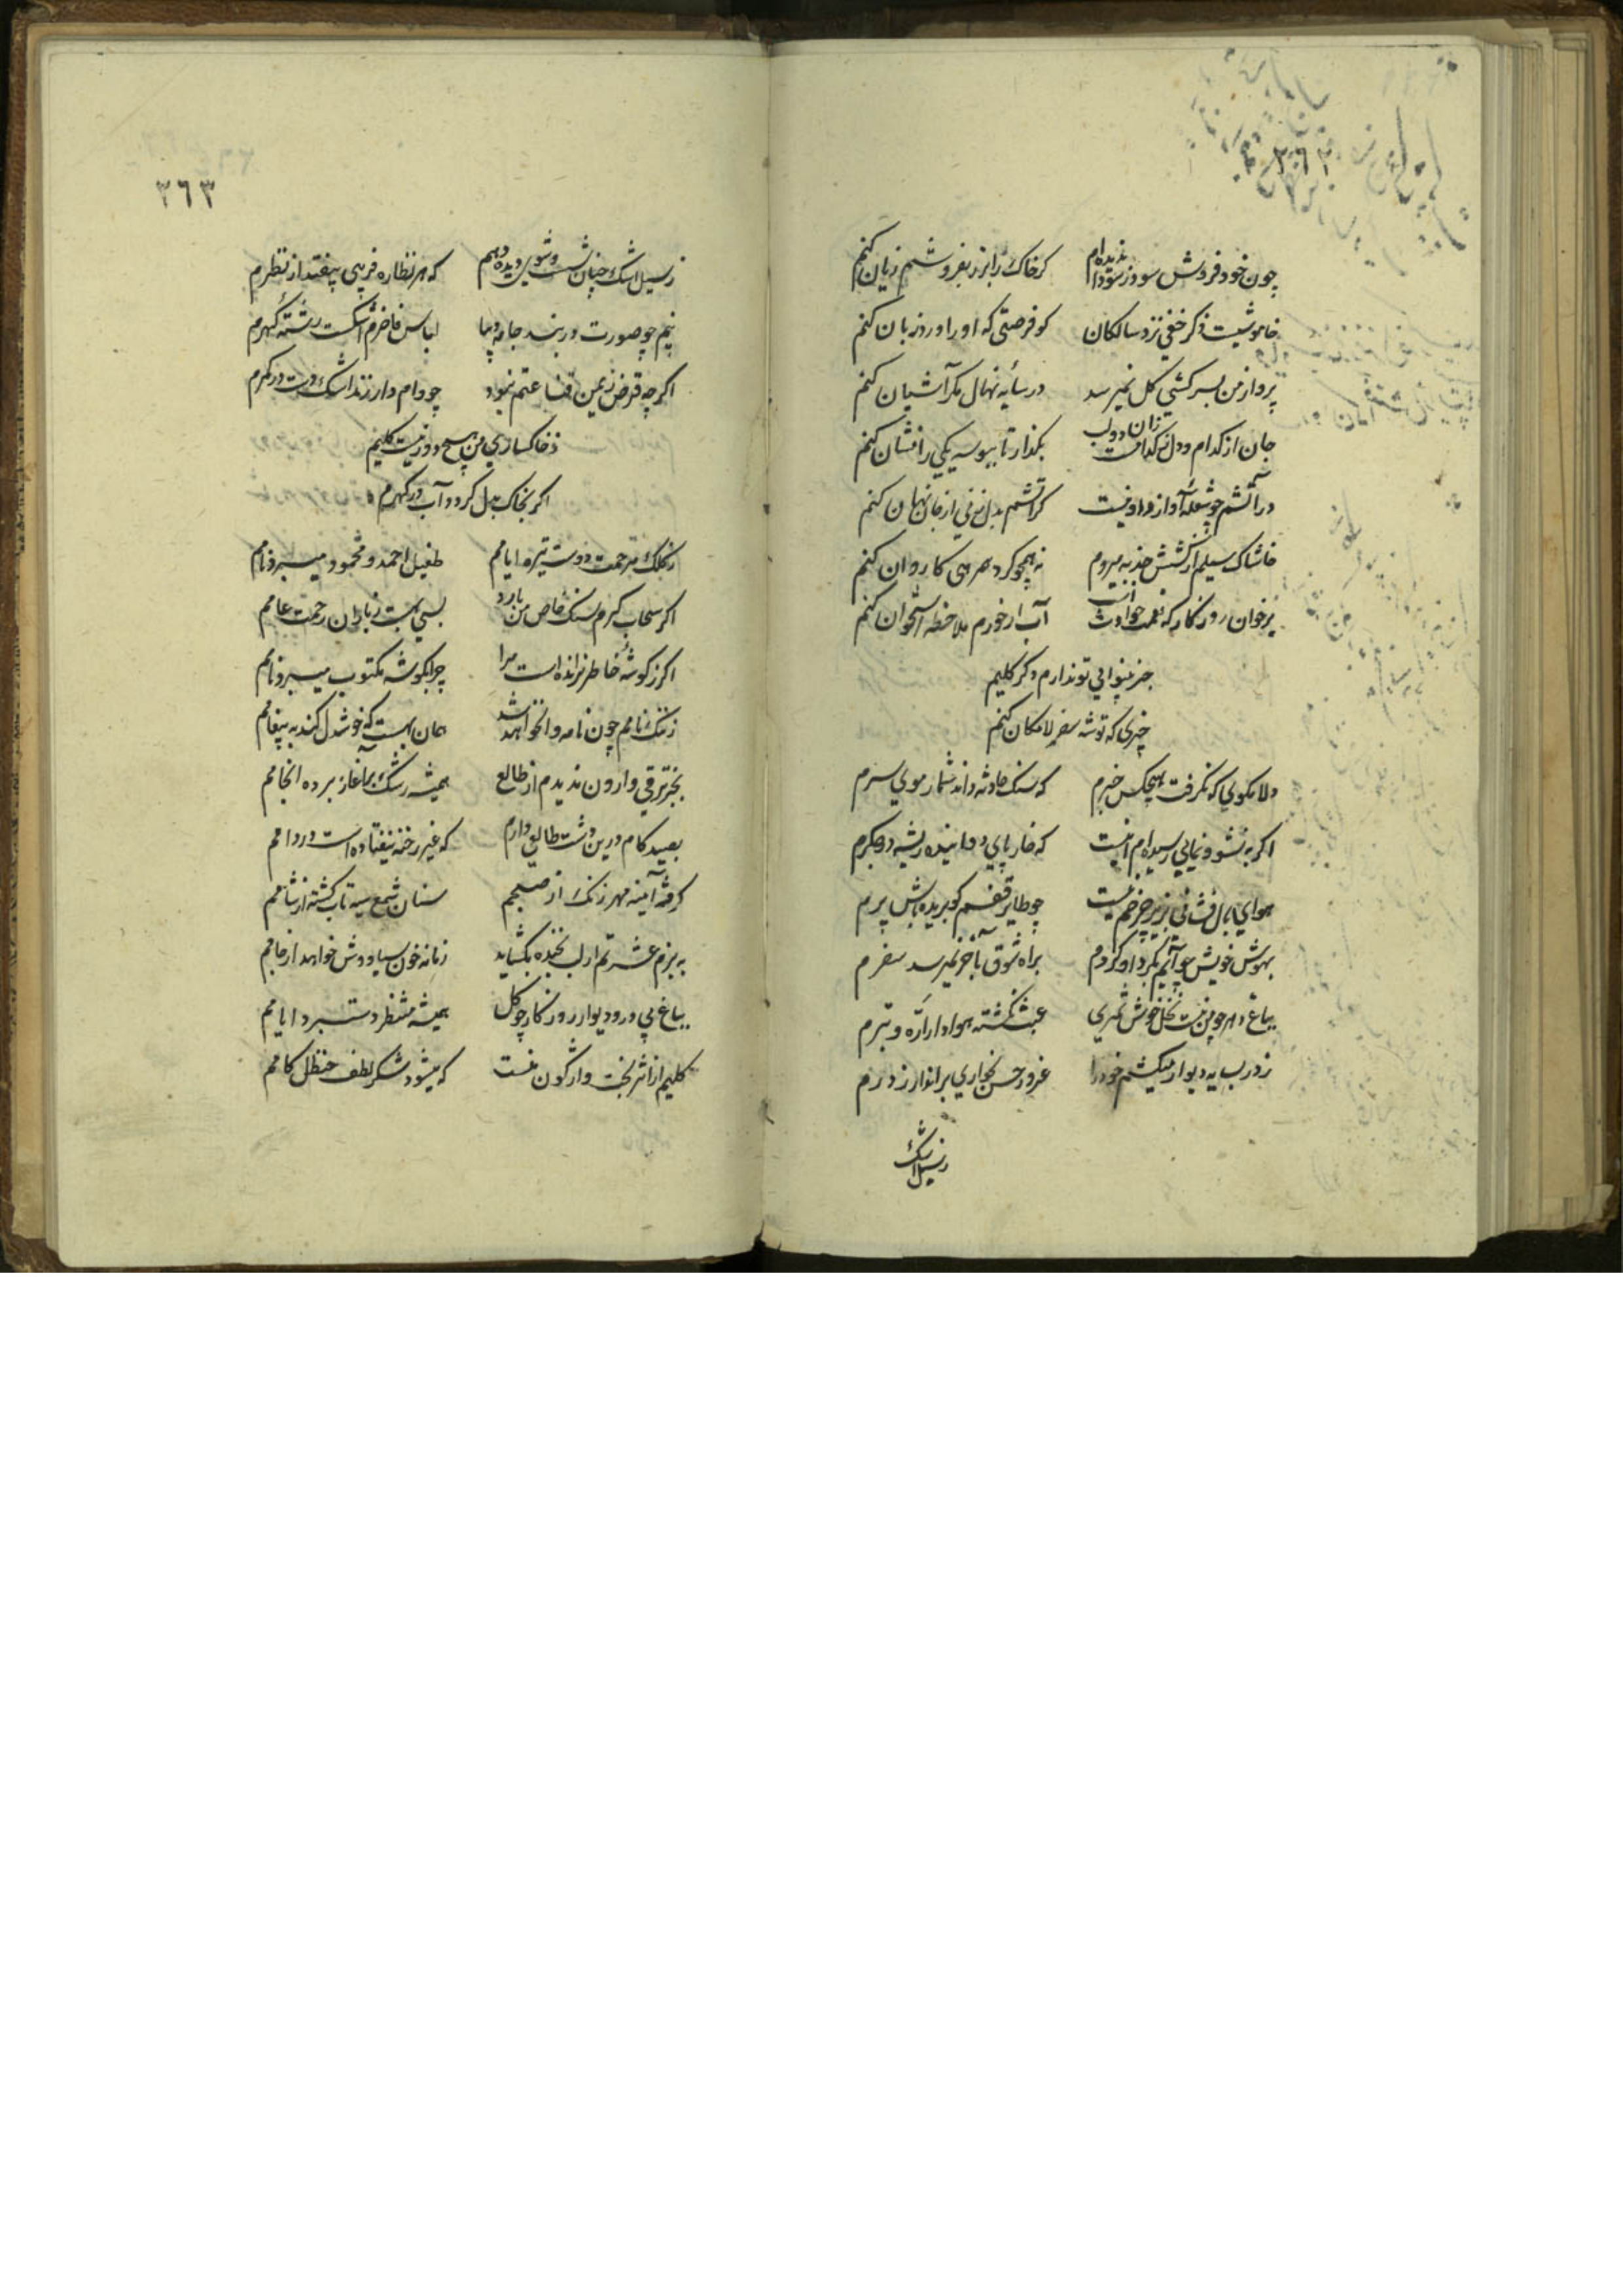 ٣٦٢
چون خود فروش سود ز سودا ندیده‌ام کر خاک را بزر بفروشم زیان کنم
خاموشیست ذکر خفی نزد سالکان کو فرصتی که او را ورد زبان کنم
پرواز من بسر کشی کل نمیرسد در سایه نهال مکر آشیان کنم
جان از کدام و دل ز کدامست زان دو لب بکذار تا ببوسه یکی را نشان کنم
در آتشم چو شعله آواز دود نیست کر آتشم بدل نزنی از جان نهان کنم
خاشاک سیلم از کشش جذبه میروم نه همچو کرد همرهی کاروان کنم
بر خوان روزکار که نعمت حوادث است آب ار خورم ملاحظه استخوان کنم
جز بینوایی تو ندارم دکر کلیم
چیزی که توشه سفر لامکان کنم
دلا مکوی که نکرفت هیچکس خبرم که سنک حادثه داند شمار موی سرم
اکر به نشو و نمایی رسیده‌ام اینست که خار پای دوانیده ریشه در جکرم
هوای بال فشانی بزیر چرخم نیست چو طایر قفسم کو بریده باش پرم
بهوش خویش چو آیم بکرد او کردم براه شوق بآخر نمیرسد سفرم
بباغ دهر چو من نیست نخل خوش ثمری عبث نکشته هوادار اره و تبرم
ز در بسایه دیوار میکشم خود را غرور حسن بخواری براند ار ز درم
ز سیل اشک
٣٦٣
ز سیل اشک چنان شست و شوی دیده دهم که هر نظاره فریبی بیفتد از نظرم
نیم چو صورت در بند جامه دیبا لباس فاخرم اشکست رشته کهرم
اکرچه قرض زمین قناعتم ننمود چو وام دار زند اشک دست در کمرم
ز خاکساری من هیچ دور نیست کلیم
اکر بخاک بدل کردد آب در کهرم
ز کلک مرحمت دوست تیره ایامم طفیل احمد و محمود میبرد نامم
اکر سحاب کرم سنک خاص من بارد بسی بهست ز باران رحمت عامم
اکر ز کوشه خاطر نرانده است مرا چرا بکوشه مکتوب میبرد نامم
ز ننک نامم چون نامه وا نخواهد شد همان بهست که خوشدل کند به پیغامم
بجز ترقی وارون ندیدم از طالع همیشه رشک بآغاز برده انجامم
بصید کام درین دشت طالعی دارم که غیر رخنه نیفتاده است در دامم
کرفته آینه مهر زنک از صبحم سنان شمع سیه تاب کشته از شامم
به بزم عشرتم ار لب بخنده بکشاید زمانه خون سیاووش خواهد از جامم
بباغ بی در و دیوار روزکار چو کل همیشه منتظر دستبرد ایامم
کلیم از اثر بخت واژکون منست که میشود شکر لطف حنظل کامم